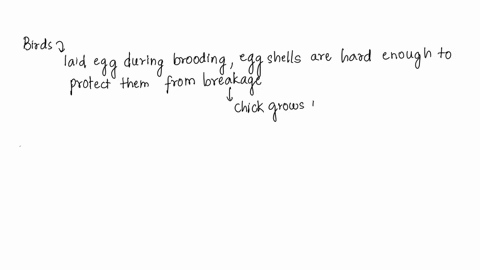 Birds
laid egg during brooding, egg shells are hard enough to
protect them from breakage
chick grows